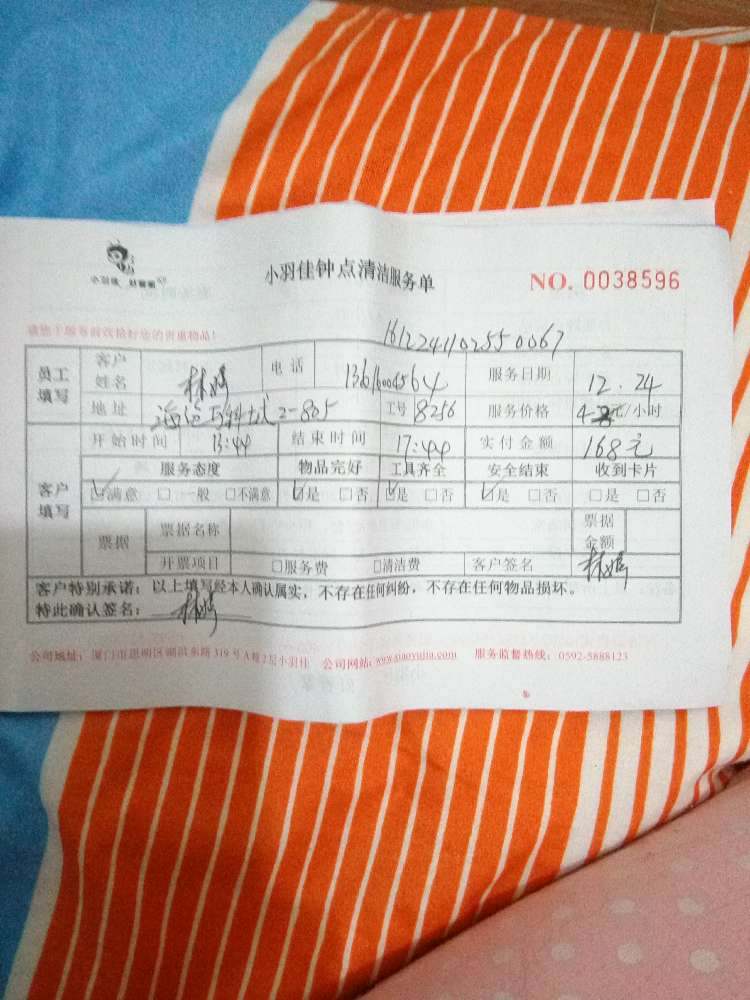 小羽佳
小羽佳钟点清洁服务单
NO. 0038596
161224110255550067
员工填写 客户姓名 林婷 电话 服务日期 12.24
地址 2-805 工号 8256 服务价格 元/小时
客户填写 开始时间 13:44 结束时间 17:44 实付金额 168元
服务态度 物品完好 工具齐全 安全结束 收到卡片
☑满意 □一般 □不满意 ☑是 □否 ☑是 □否 ☑是 □否 □是 □否
票据 票据名称 票据金额
开票项目 □服务费 □清洁费 客户签名 林婷
客户特别承诺:以上填写经本人确认属实,不存在任何纠纷,不存在任何物品损坏。
特此确认签名: 林婷
公司地址:厦门市思明区湖滨东路319号A幢2层小羽佳 公司网站:www.xiaoyujia.com 服务监督热线:0592-5888123